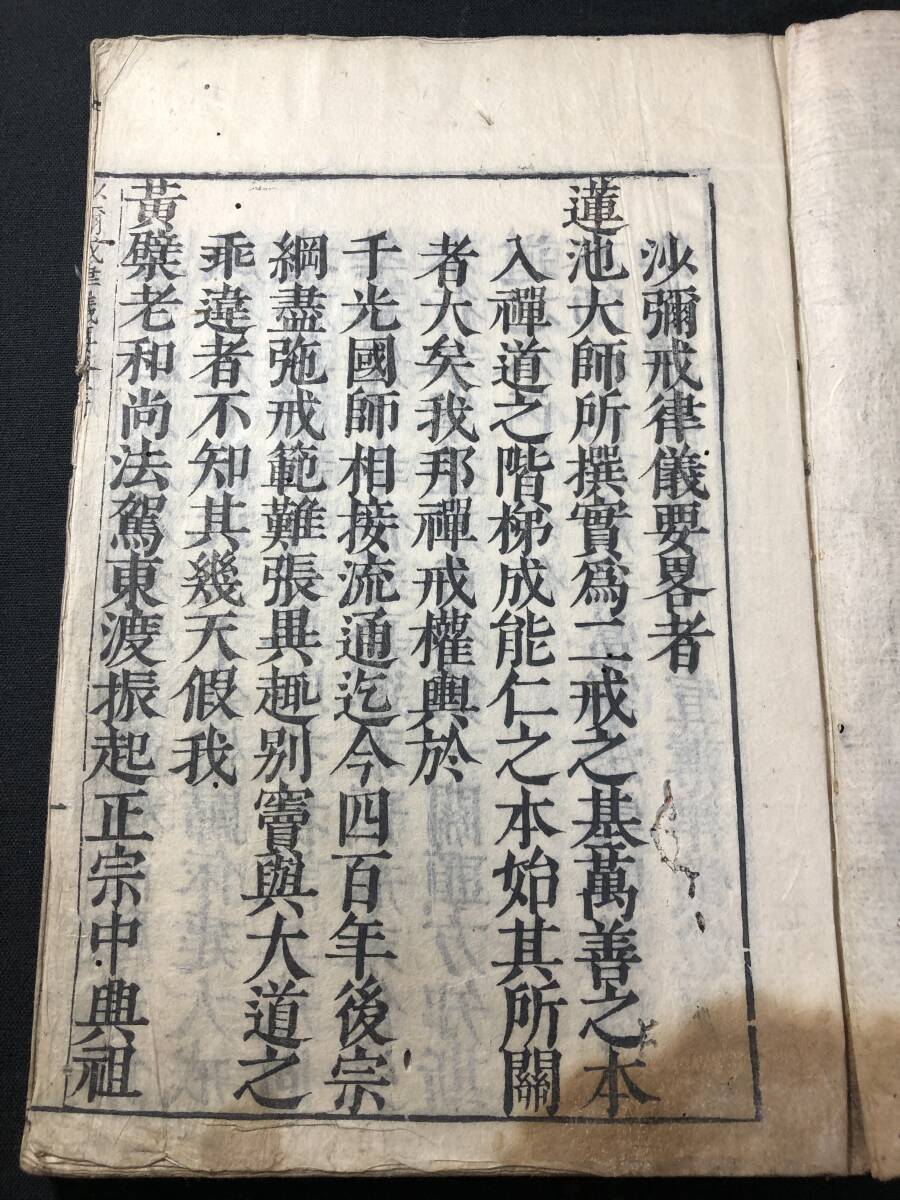 沙彌戒律儀要畧者
蓮池大師所撰實爲二戒之基萬善之本
入禪道之階梯成能仁之本始其所關
者大矣我邦禪戒權輿於
千光國師相接流通迄今四百年後宗
綱盡弛戒範難張異趣别竇與大道之
乖違者不知其幾天假我
黃檗老和尚法駕東渡振起正宗中興祖